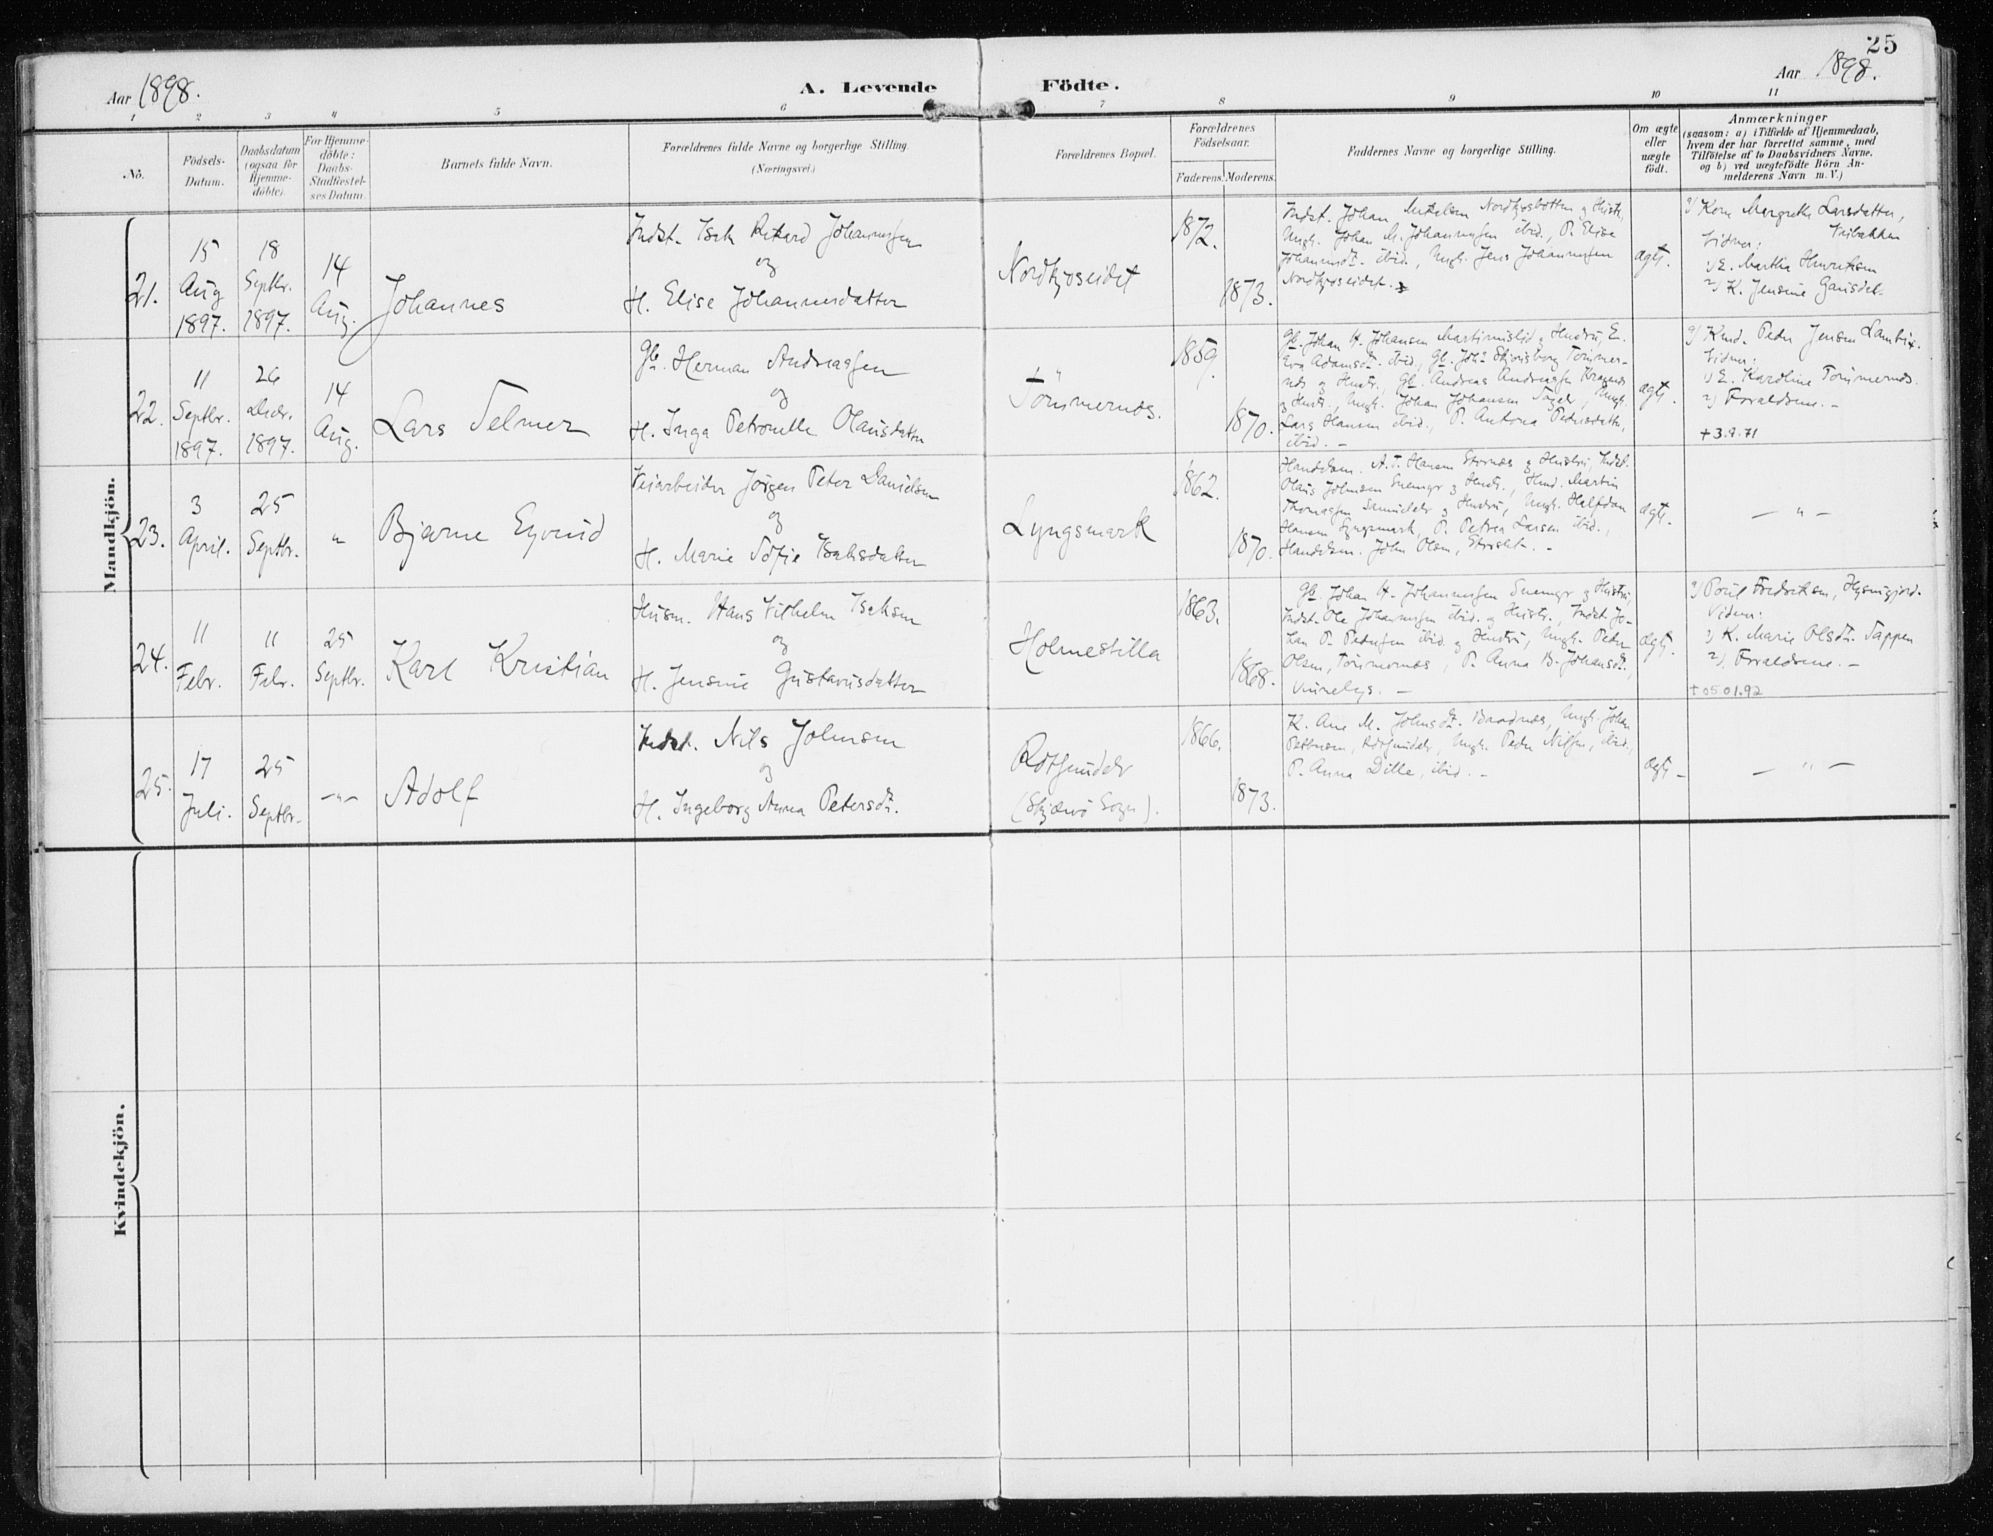 25
Aar 1898.
A. Levende Födte.
Aar 1898.
1 2 3 4 5 6 7 8 9 10 11
No.
Födsels-
Datum.
Daabsdatum
(ogsaa for
Hjemme-
döbte).
For Hjemme-
döbte:
Daabs-
Stadfæstel-
ses Datum
Barnets fulde Navn.
Forældrenes fulde Navne og borgerlige Stilling.
(Næringsvei.)
Forældrenes Bopæl.
Forældrenes
Födselsaar.
Faderens. Moderens.
Faddernes Navne og borgerlige Stilling.
Om ægte
eller
uægte
födt.
Anmærkninger
(saasom: a) i Tilfælde af Hjemmedaab,
hvem der har forrettet samme, med
Tilföielse af to Daabsvidners Navne.
og b) ved uægtefödte Börn An-
melderens Navn m. V.)
Mandkjön.
21.
15
Aug
1897.
18
Septbr.
1897.
14
Aug.
Johannes
Indst. Isak Rikard Johannessen
og
H. Elise Johannesdatter
Nordkjoseidet
1872.
1873.
Indst. Johan Mikelsen Nordkjosbotten og Hustr.
Ungk. Johan M. Johannessen ibid., P. Elise
Johannesdt. ibid., Ungk. Jens Johannessen
Nordkjoseidet.
ægt.
Kone Margrethe Larsdatter,
Vidner:
1) E. Martha Henriksen
2) K. Jensine
22.
11
Septbr.
1897.
26
Decbr.
1897.
14
Aug.
Lars Selmer
Gb. Herman Andreassen
og
H. Inga Petronelle Olausdatter
Tömmernes.
1859.
1870.
Gb. Johan H. Johansen og Hustru, E.
Adamsdt. ibid., Gb. Tömmer-
nes og Hustr., Gb. Andreas Andreassen
og Hustr., Ungk. Johan Johansen
Lars Hansen ibid., P. Antona Pedersdatter,
ibid. —
ægt.
Peder Jensen
Vidner:
1) E. Karoline Tömmernes.
2) Forældrene. —
+ 3.9.71
23.
3
April.
25
Septbr.
"
Bjarne Eyvind
Veiarbeider Jörgen Peter Danielsen
og
H. Marie Sofie Isaksdatter
Lyngsmark
1862.
1870.
Handelsm. A. T. Hansen Stornes og Hustru, Indst.
Olaus Johnsen og Hustr., Martin
Thomassen og Hustru, Ungk. Halfdan
Hansen Lyngsmark, P. Petrea Larsen ibid.,
Handelsm. John Olsen,
ægt.
— " —
24.
11
Febr.
11
Febr.
25
Septbr.
Karl Kristian
Husm. Hans Vilhelm Isaksen
og
H. Jensine Gustavusdatter
Holmestilla
1863.
1868.
Gb. Johan H. Johannessen og Hustru,
Indst. Ole Johannessen ibid. og Hustr., Indst. Jo-
han P. Pedersen ibid. og Hustru, Ungk. Peder
Olsen, Tömmernes, P. Anna B. Johansdt.,
ægt.
Poul Fredriksen,
Vidner:
1) K. Marie Olsdt.
2) Forældrene. —
+ 05 01.92
25.
17
Juli.
25
Septbr.
— " —
Adolf
Indst. Nils Johnsen
og
H. Ingeborg Anna Petersdt.
Rotsundelv
(Skjærvö Sogn).
1866.
1873.
K. Ane M. Johnsdt. Ungk. Johan
Rotsundelv, Ungk. Peder Nilsen, ibid.,
P. Anna Dille, ibid. —
ægt —
— " —
Kvindekjön.